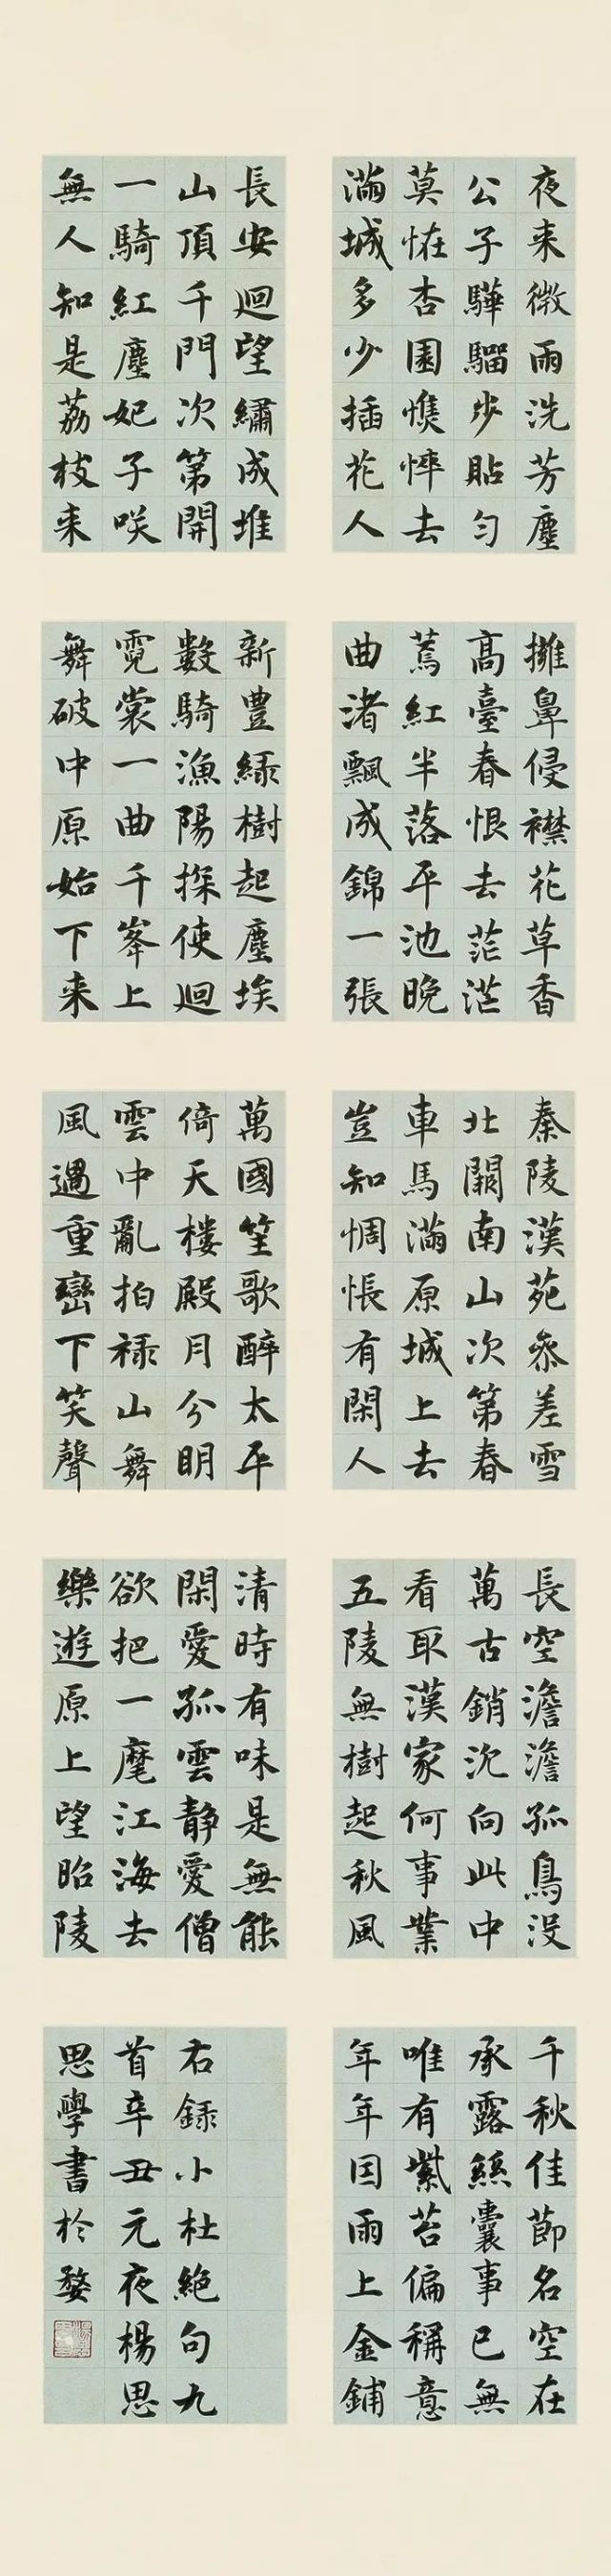 夜来微雨洗芳塵
公子驊騮步貼勻
莫恠杏園憔悴去
滿城多少插花人
擁鼻侵襟花草香
高臺春恨去茫茫
蔫紅半落平池晚
曲渚飄成錦一張
秦陵漢苑參差雪
北闕南山次第春
車馬滿原城上去
豈知惆悵有閑人
長空澹澹孤鳥沒
萬古銷沈向此中
看取漢家何事業
五陵無樹起秋風
千秋佳節名空在
承露絲囊事已無
唯有紫苔偏稱意
年年因雨上金鋪
長安迴望繡成堆
山頂千門次第開
一騎紅塵妃子咲
無人知是荔枝来
新豐緑樹起塵埃
數騎漁陽探使迴
霓裳一曲千峯上
舞破中原始下来
萬國笙歌醉太平
倚天樓殿月分明
雲中亂拍祿山舞
風過重巒下笑聲
清時有味是無能
閑愛孤雲靜愛僧
欲把一麾江海去
樂遊原上望昭陵
右録小杜絕句九
首辛丑元夜楊思
思學書於婺